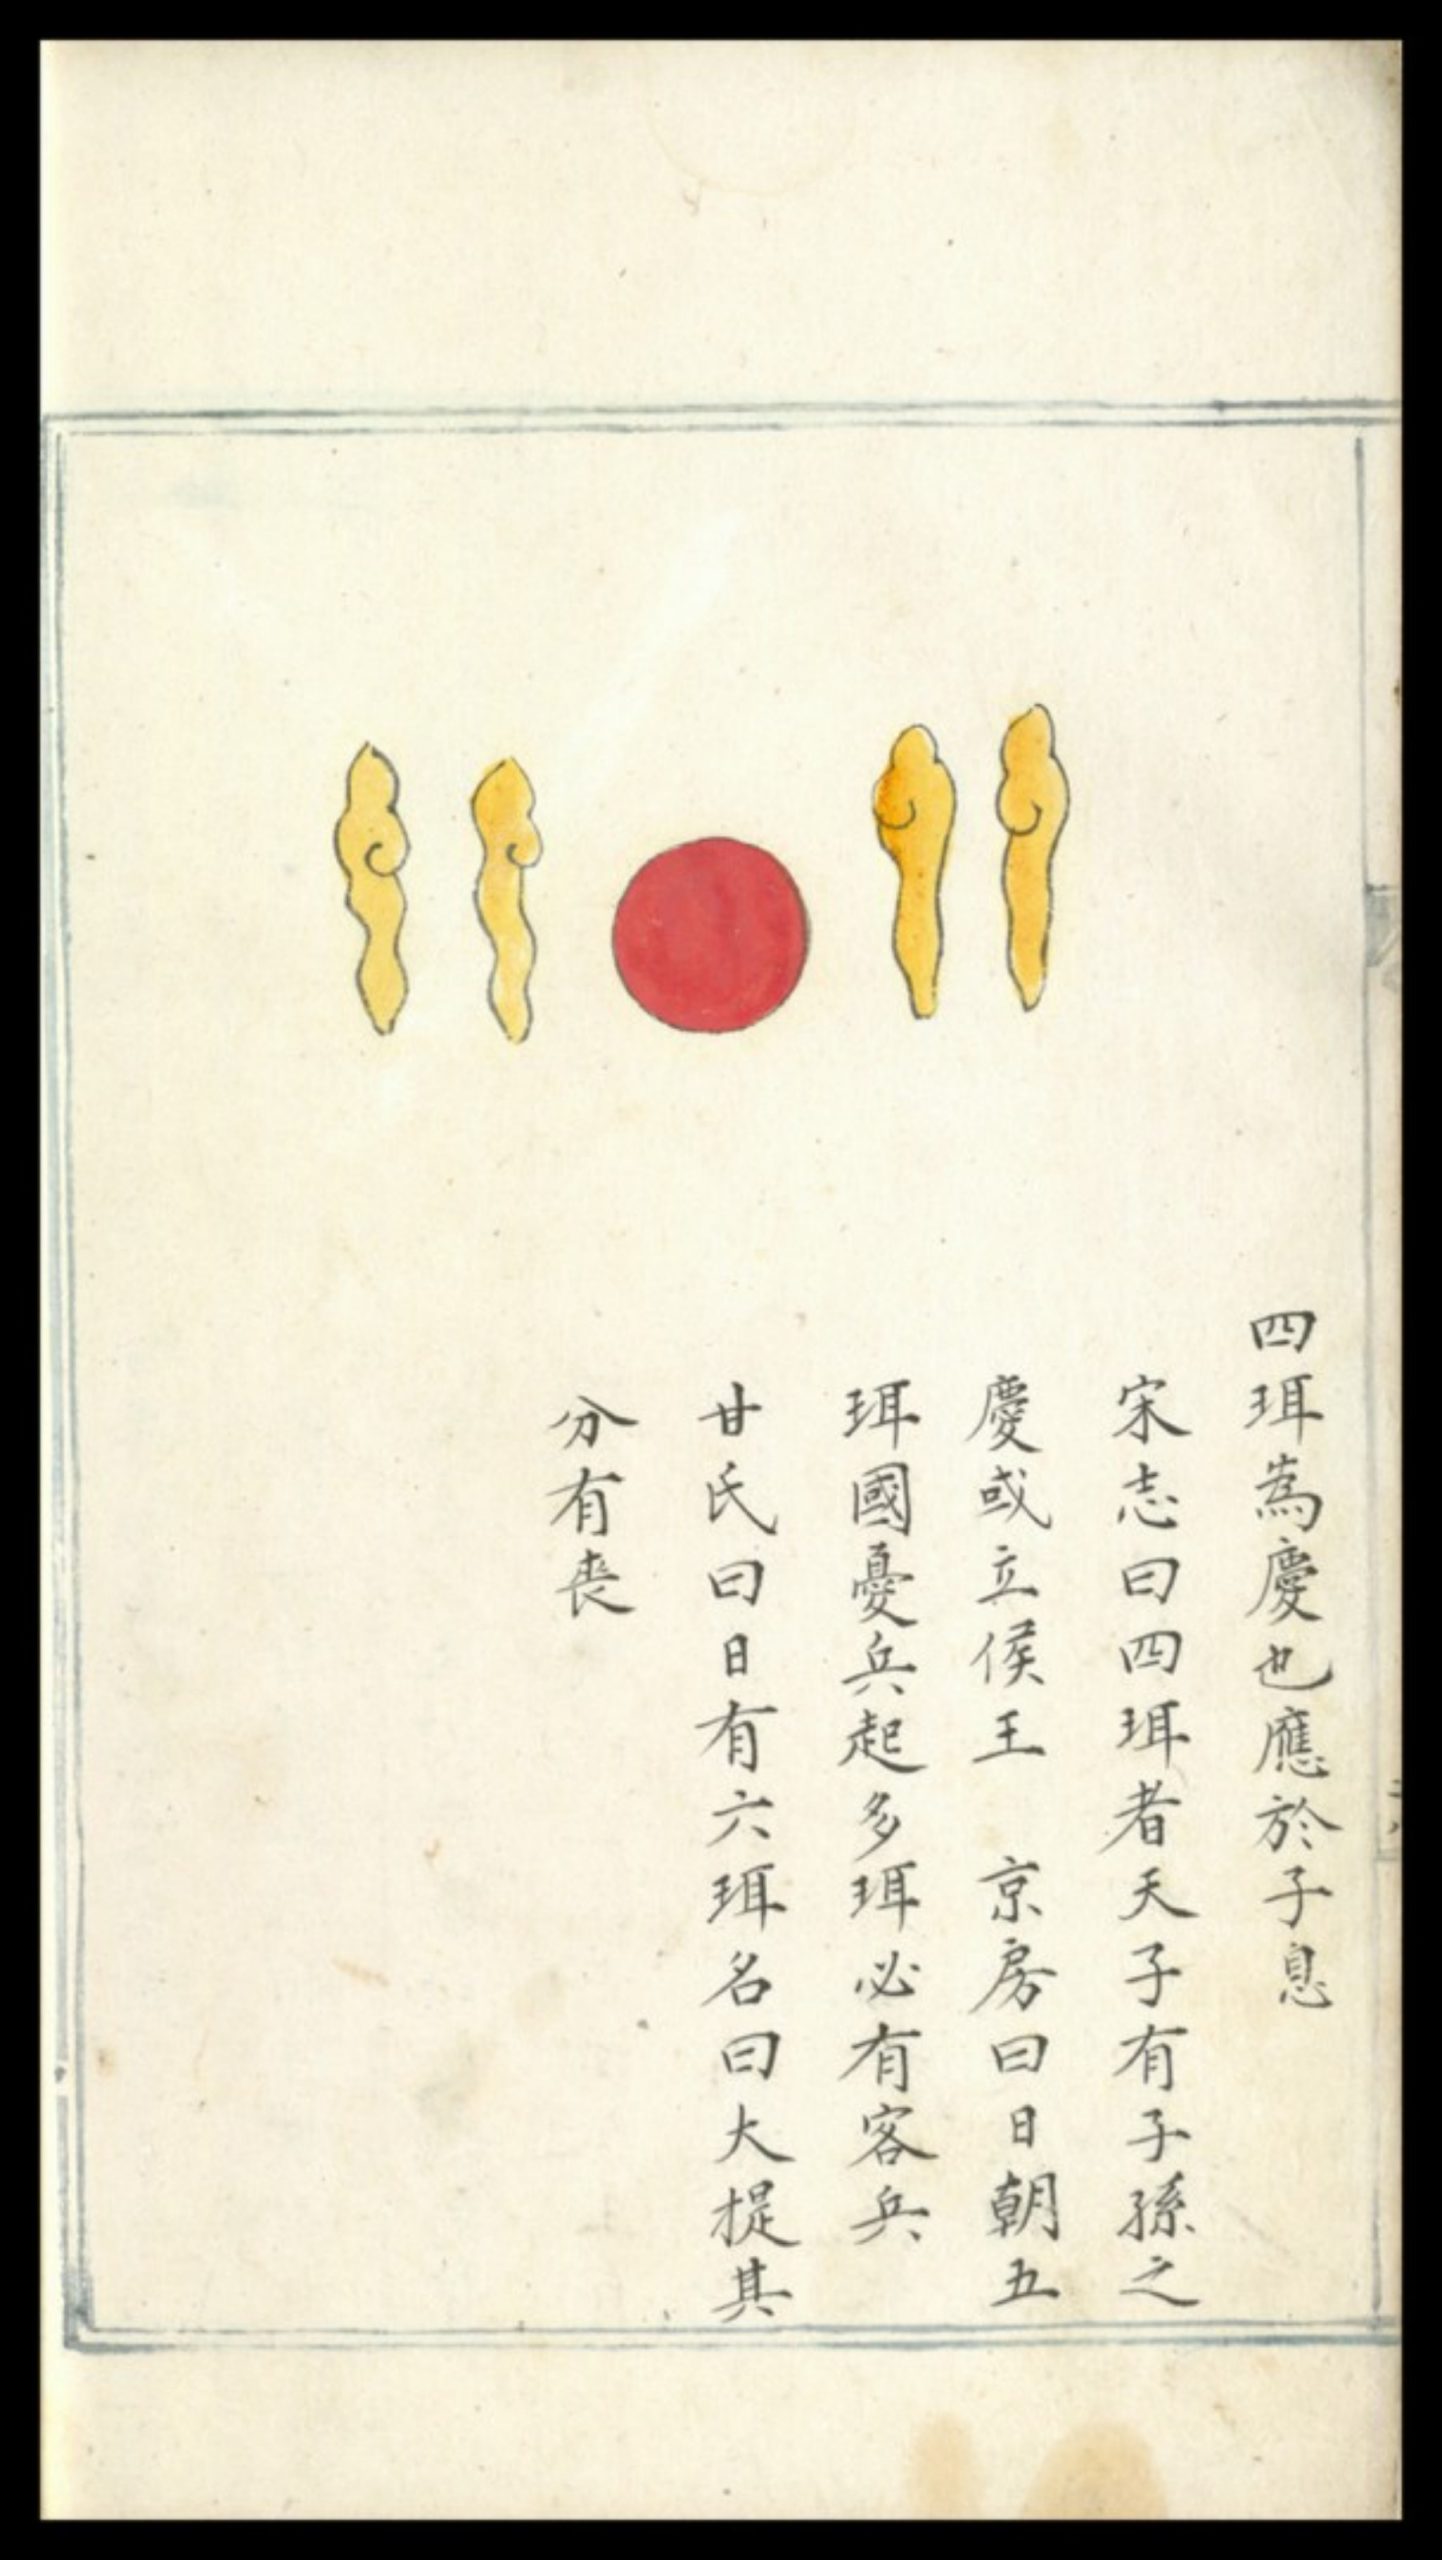 四珥為慶也應於子息
宋志曰四珥者天子有子孫之
慶或立侯王　京房曰日朝五
珥國憂兵起多珥必有客兵
甘氏曰日有六珥名曰大提其
分有喪